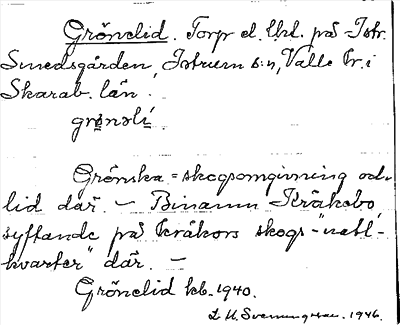 Grönelid. Torp el. lht. på Istr.
Smedsgården, Istrum s:n, Valle hr. i
Skarab. län.
grønslí.
Grönska = skogsomgivning och
lid där. — Binamn Kråkebo
syftande på kråkors skogs-"natt-
kvarter" där. —
Grönelid kb. 1940.
1946.